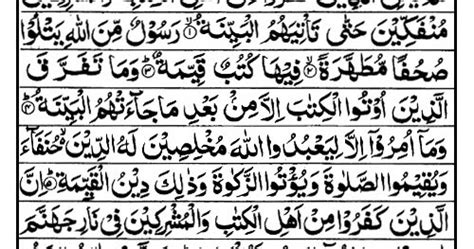 مُنْفَكِّيْنَ حَتّٰى تَاْتِيَهُمُ الْبَيِّنَةُ ۙ۝۱ رَسُوْلٌ مِّنَ اللّٰهِ يَتْلُوْا
صُحُفًا مُّطَهَّرَةً ۙ۝۲ فِيْهَا كُتُبٌ قَيِّمَةٌ ؕ۝۳ وَمَا تَفَرَّقَ
الَّذِيْنَ اُوْتُوا الْكِتٰبَ اِلَّا مِنْۢ بَعْدِ مَا جَآءَتْهُمُ الْبَيِّنَةُ ؕ۝۴
وَمَاۤ اُمِرُوْۤا اِلَّا لِيَعْبُدُوا اللّٰهَ مُخْلِصِيْنَ لَهُ الدِّيْنَ ۙ۬ حُنَفَآءَ
وَيُقِيْمُوا الصَّلٰوةَ وَيُؤْتُوا الزَّكٰوةَ وَذٰلِكَ دِيْنُ الْقَيِّمَةِ ؕ۝۵ اِنَّ
الَّذِيْنَ كَفَرُوْا مِنْ اَهْلِ الْكِتٰبِ وَالْمُشْرِكِيْنَ فِيْ نَارِ جَهَنَّمَ